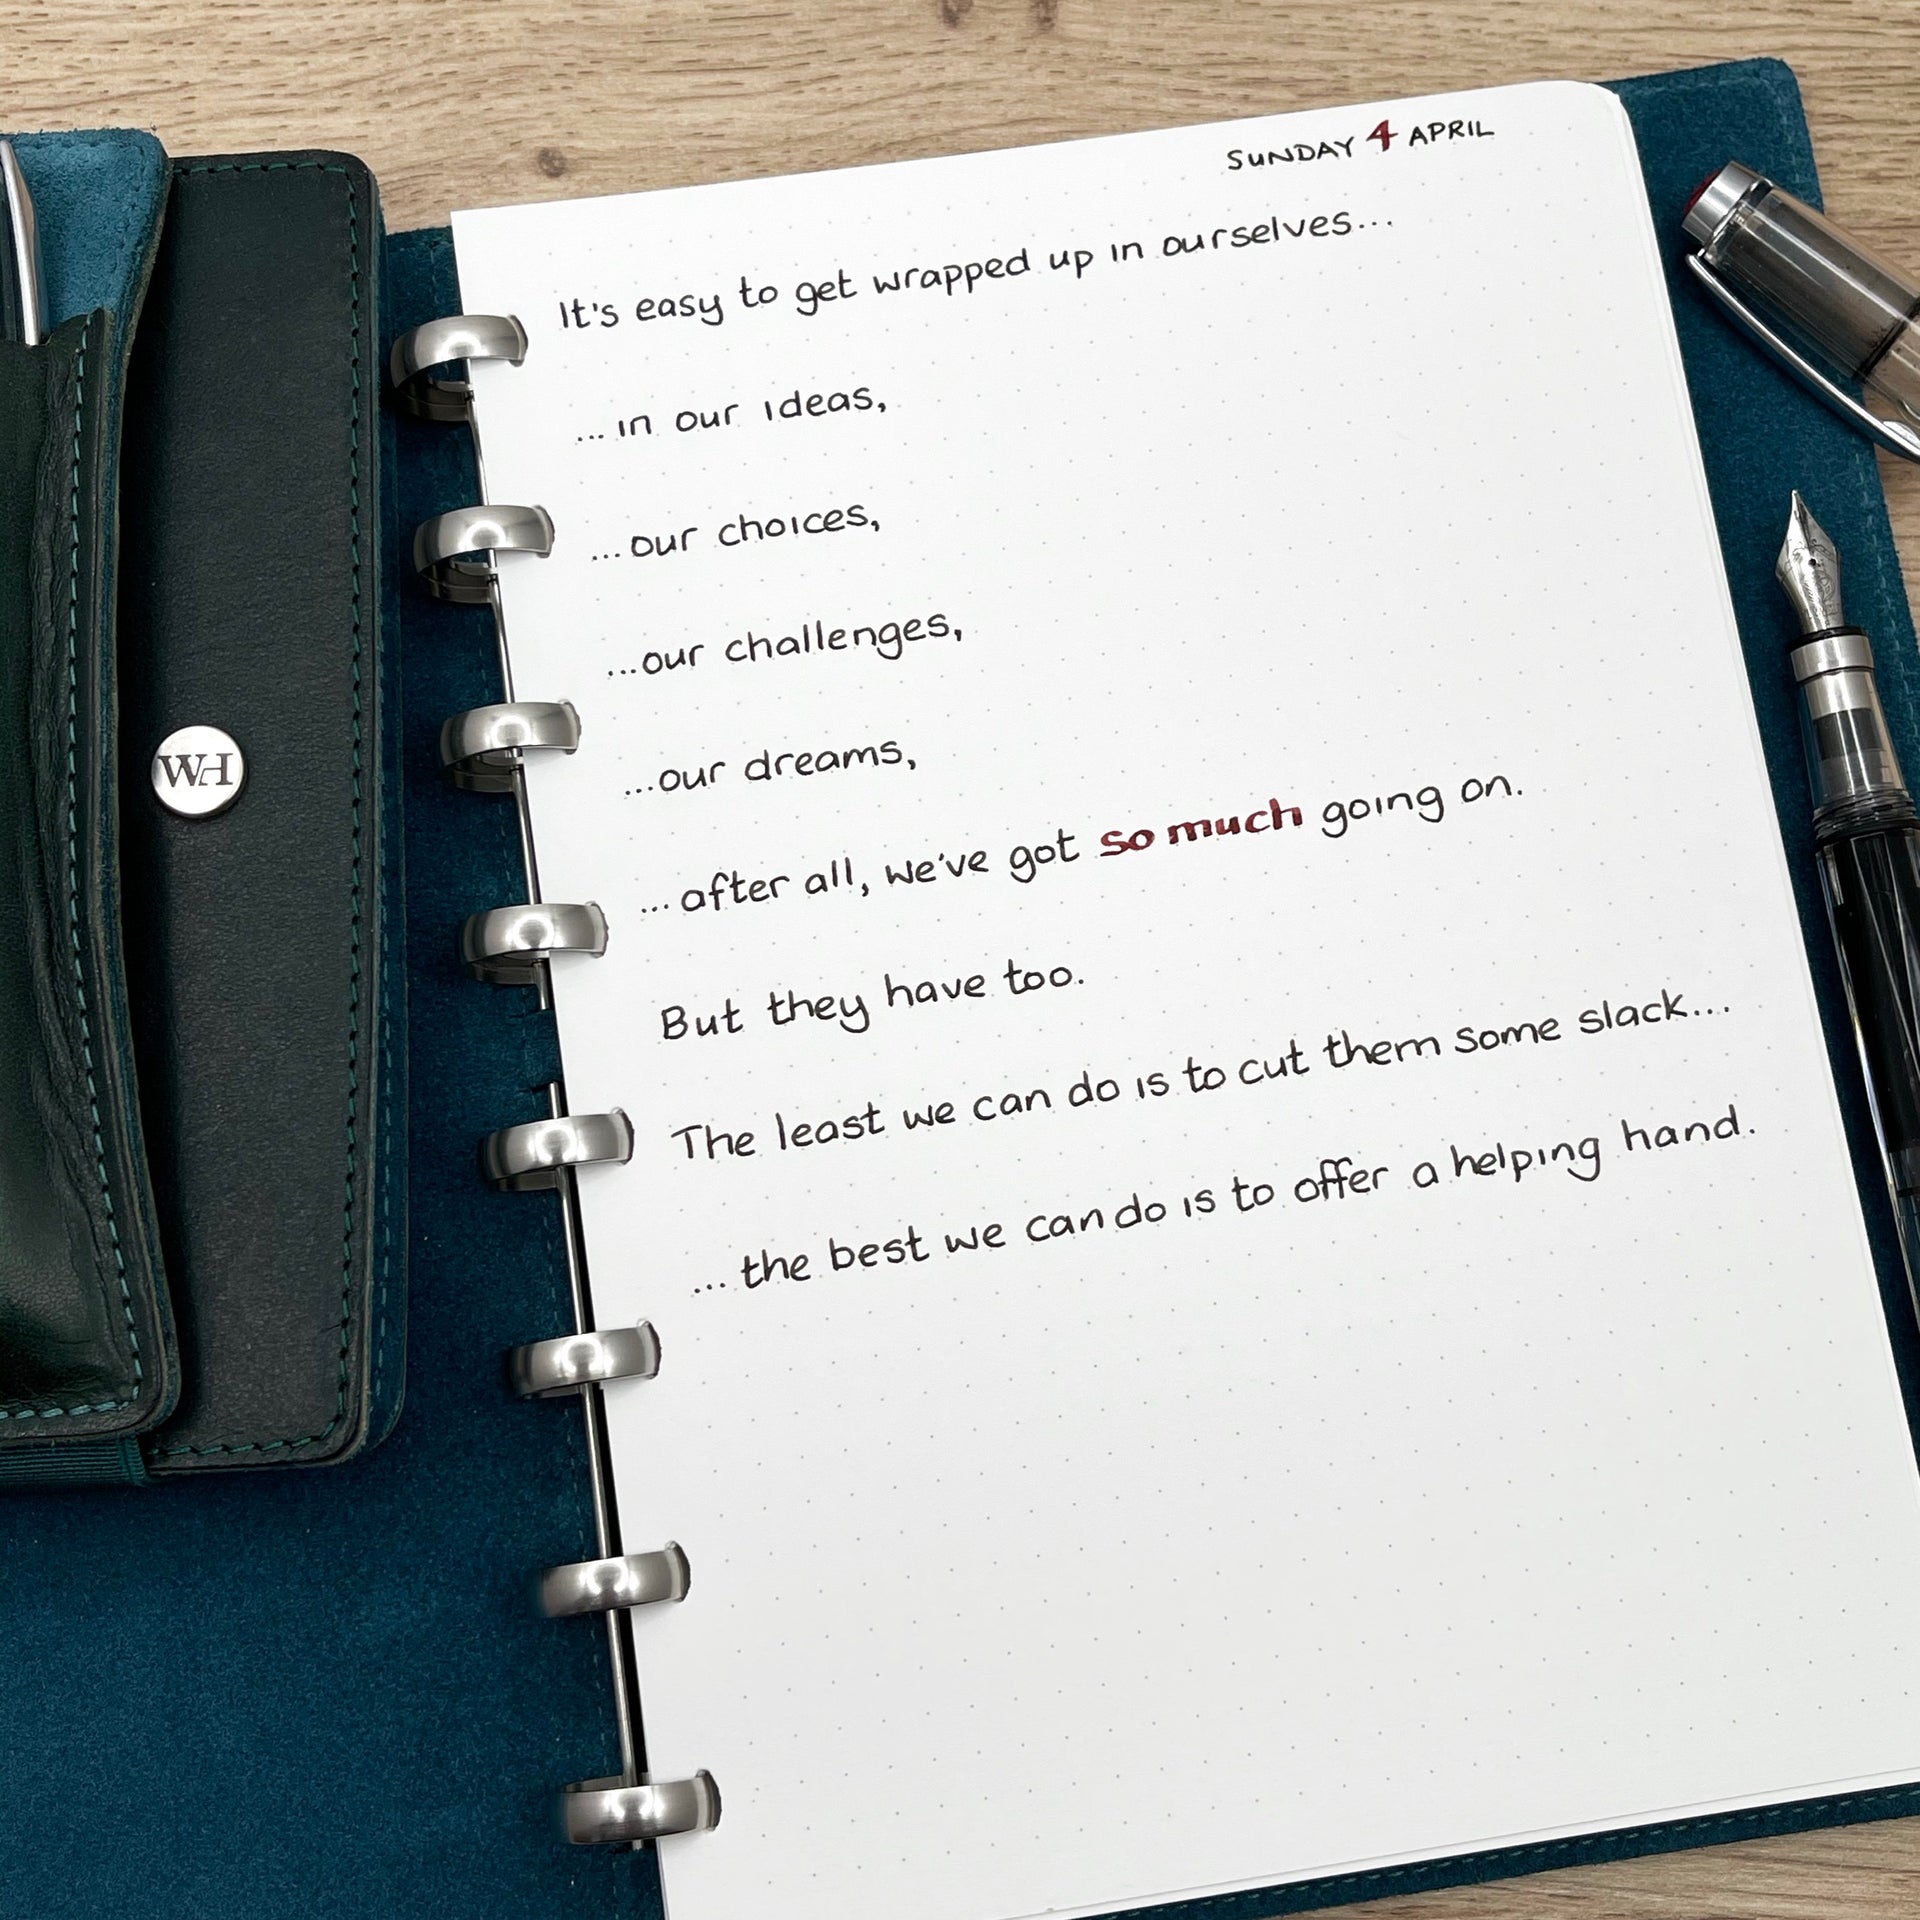 SUNDAY 4 APRIL
It's easy to get wrapped up in ourselves...
... in our ideas,
...our choices,
...our challenges,
...our dreams,
... after all, we've got so much going on.
But they have too.
The least we can do is to cut them some slack...
... the best we can do is to offer a helping hand.
WH